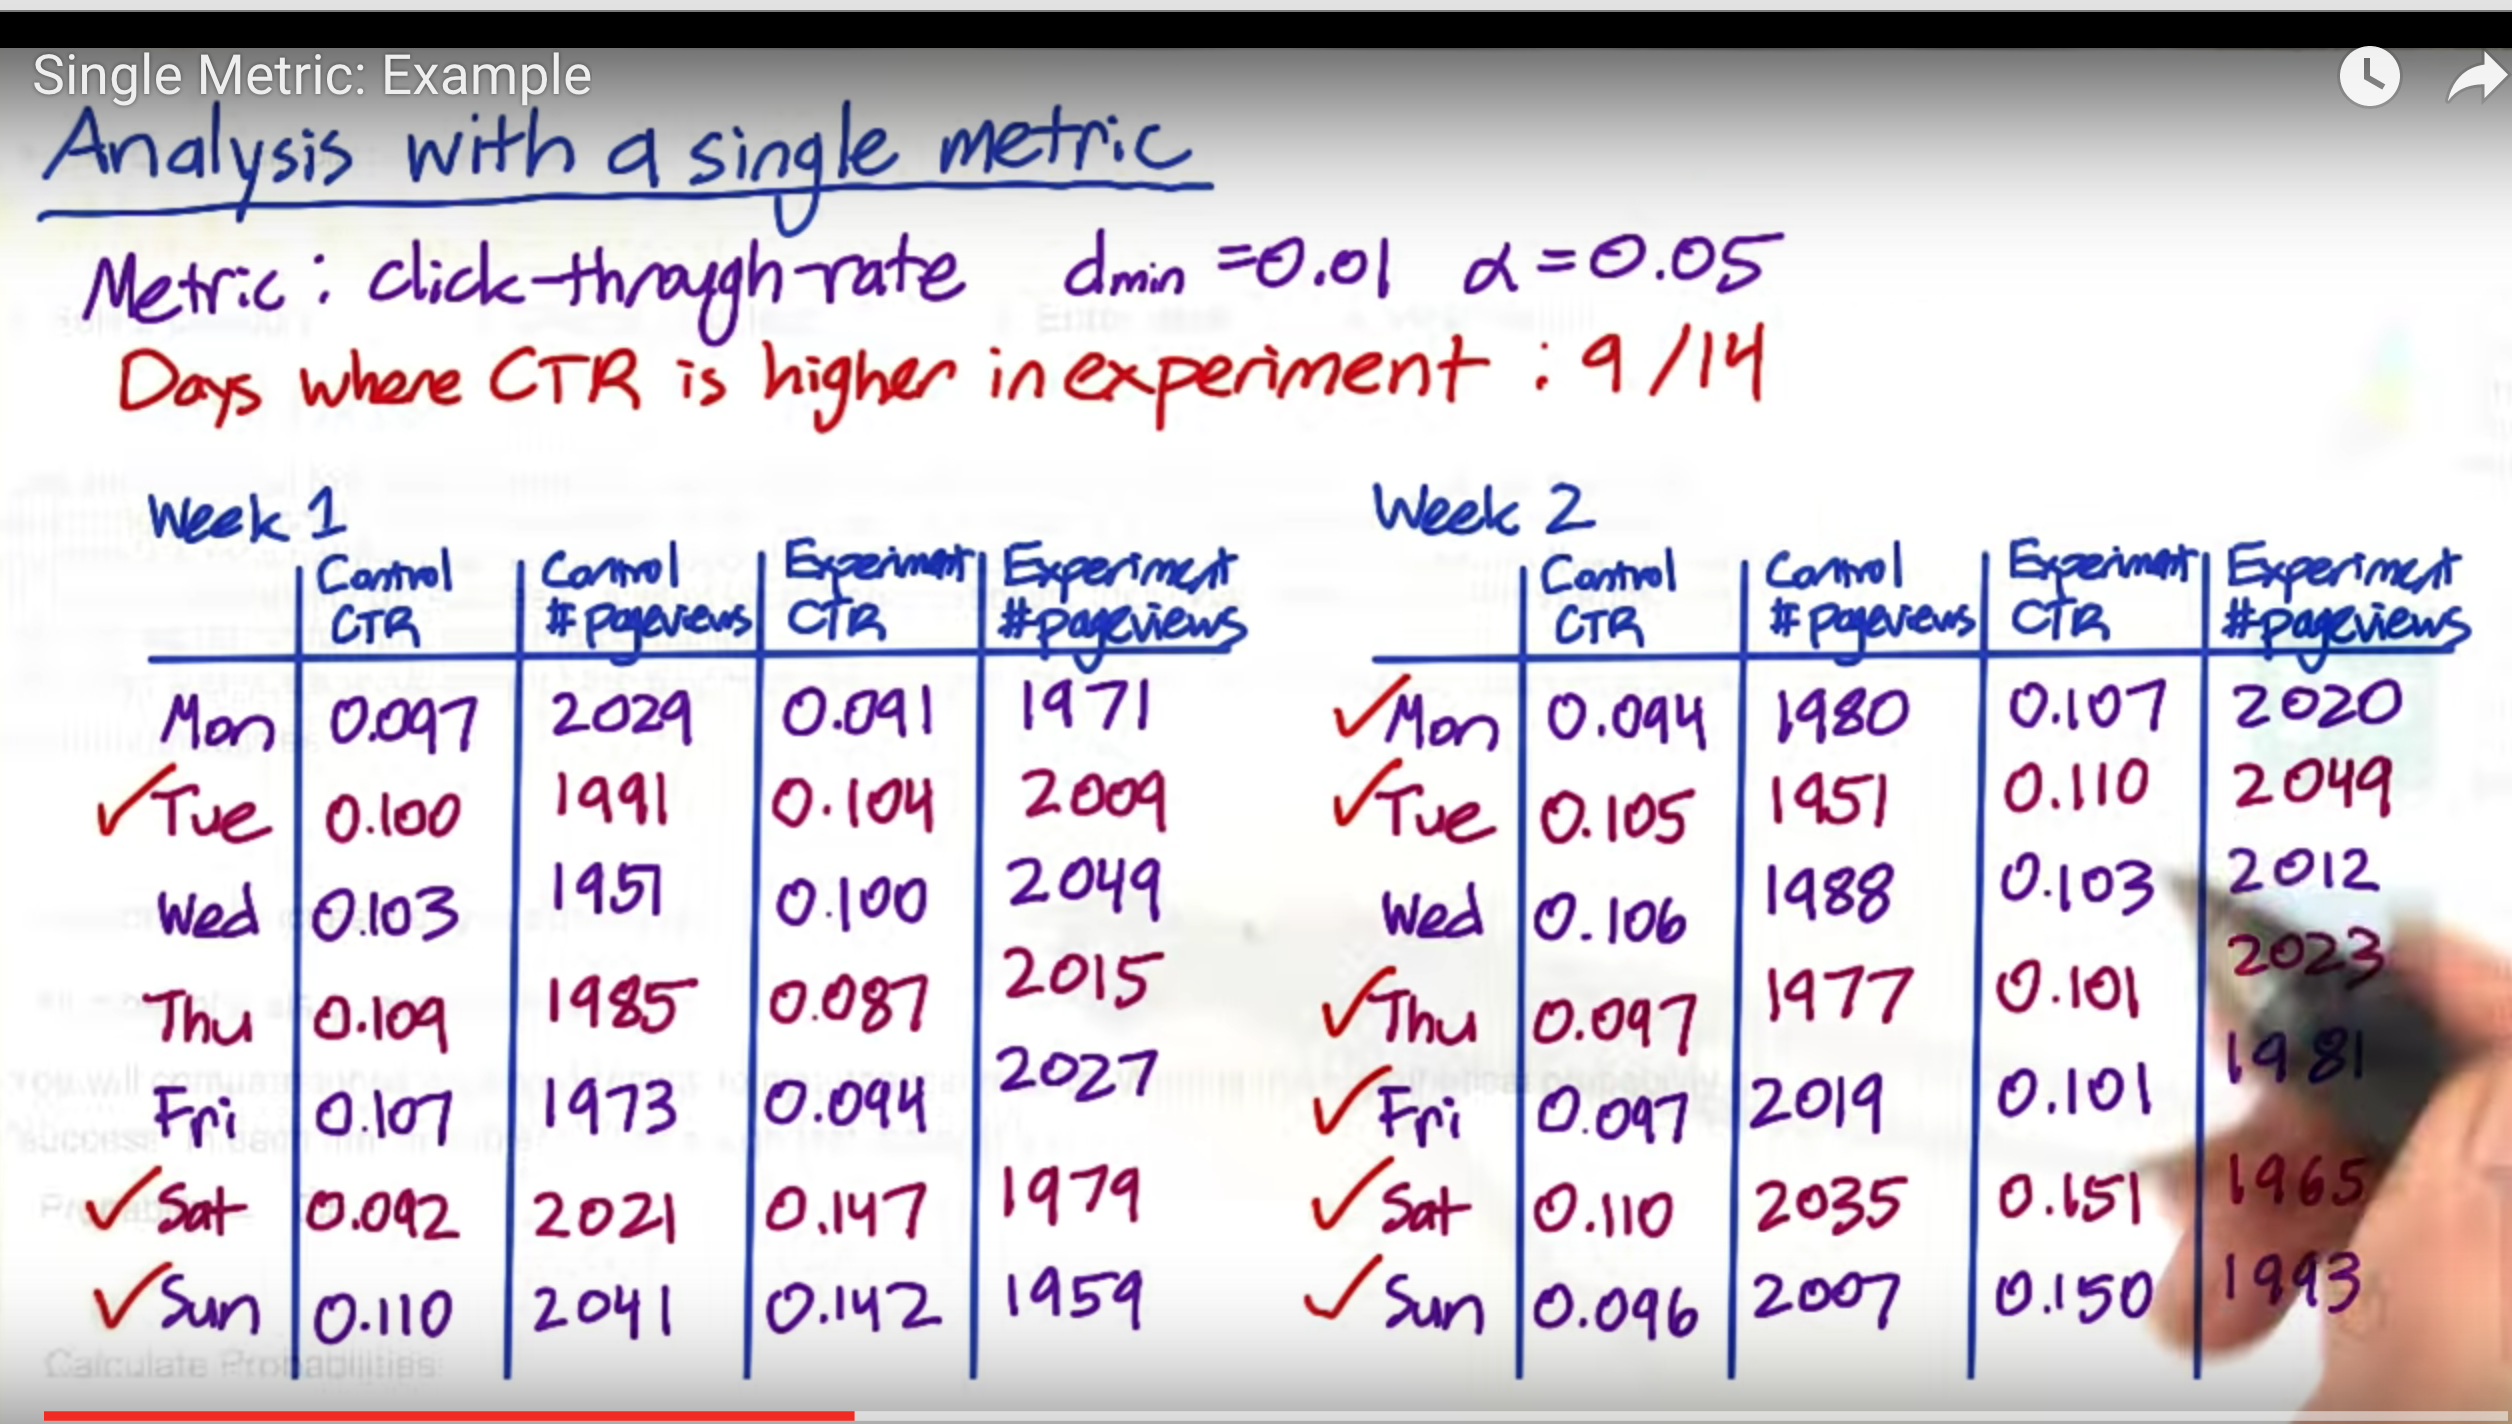 Single Metric: Example
Analysis with a single metric
Metric: click-through-rate dmin =0.01 α=0.05
Days where CTR is higher in experiment: 9/14
Week 1
Control CTR | Control # pageviews | Experiment CTR | Experiment # pageviews
Mon 0.097 2029 0.091 1971
✓ Tue 0.100 1991 0.104 2009
Wed 0.103 1951 0.100 2049
Thu 0.109 1985 0.087 2015
Fri 0.107 1973 0.094 2027
✓ Sat 0.092 2021 0.147 1979
✓ Sun 0.110 2041 0.142 1959
Week 2
Control CTR | Control # pageviews | Experiment CTR | Experiment # pageviews
✓ Mon 0.094 1980 0.107 2020
✓ Tue 0.105 1951 0.110 2049
Wed 0.106 1988 0.103 2012
✓ Thu 0.097 1977 0.101 2023
✓ Fri 0.097 2019 0.101 1981
✓ Sat 0.110 2035 0.151 1965
✓ Sun 0.096 2007 0.150 1993
Calculate Probabilities